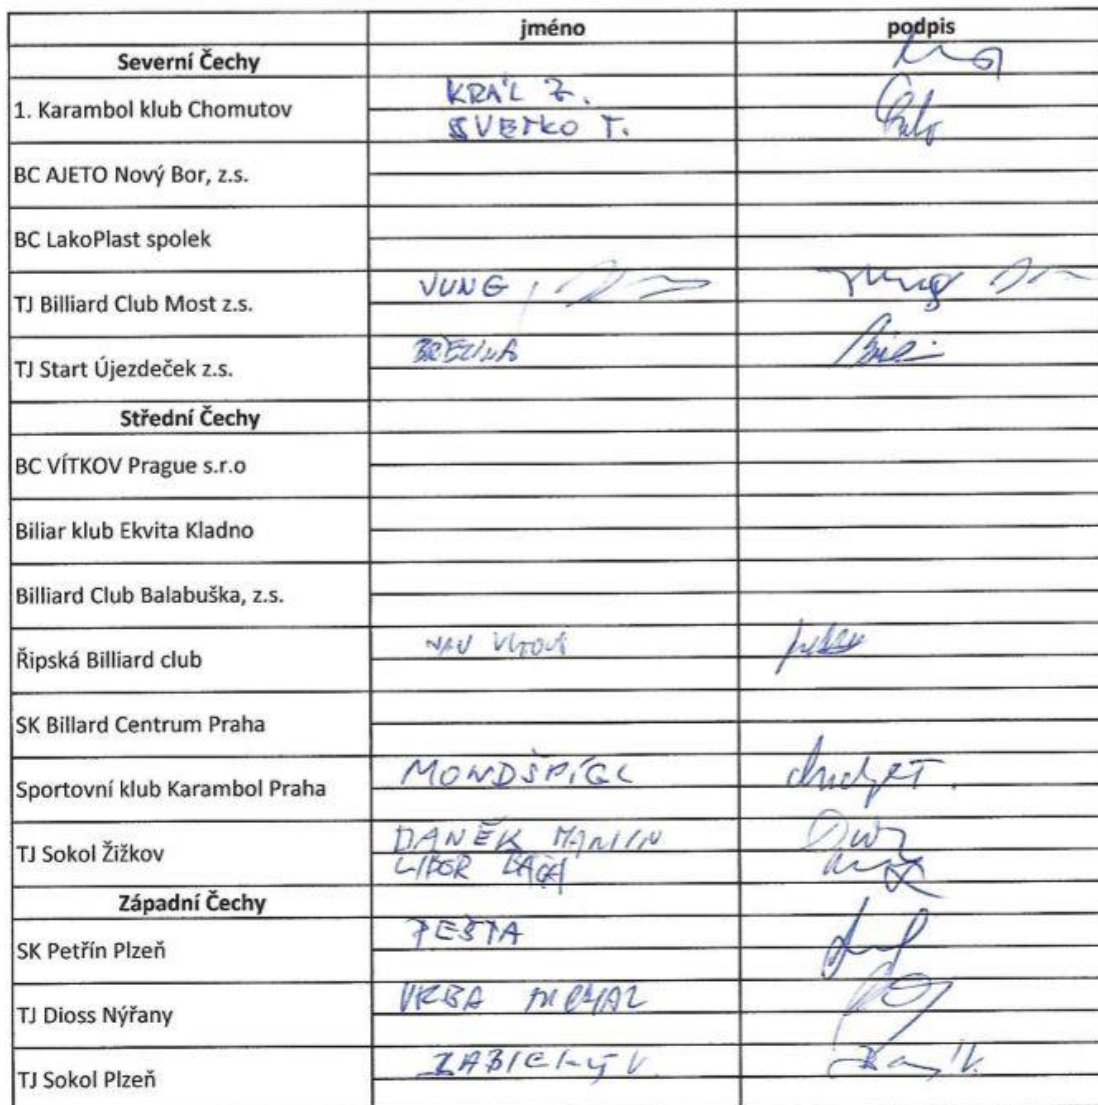 jméno podpis
Severní Čechy
1. Karambol klub Chomutov
KRÁL Z.
SVETKO T.
BC AJETO Nový Bor, z.s.
BC LakoPlast spolek
TJ Billiard Club Most z.s.
JUNG
TJ Start Újezdeček z.s.
BŘEZINA
Střední Čechy
BC VÍTKOV Prague s.r.o
Biliar klub Ekvita Kladno
Billiard Club Balabuška, z.s.
Řipská Billiard club
SK Billard Centrum Praha
Sportovní klub Karambol Praha
MONDŠPÍGL
TJ Sokol Žižkov
DANĚK MARTIN
LIBOR
Západní Čechy
SK Petřín Plzeň
PEŠTA
TJ Dioss Nýřany
VRBA MICHAL
TJ Sokol Plzeň